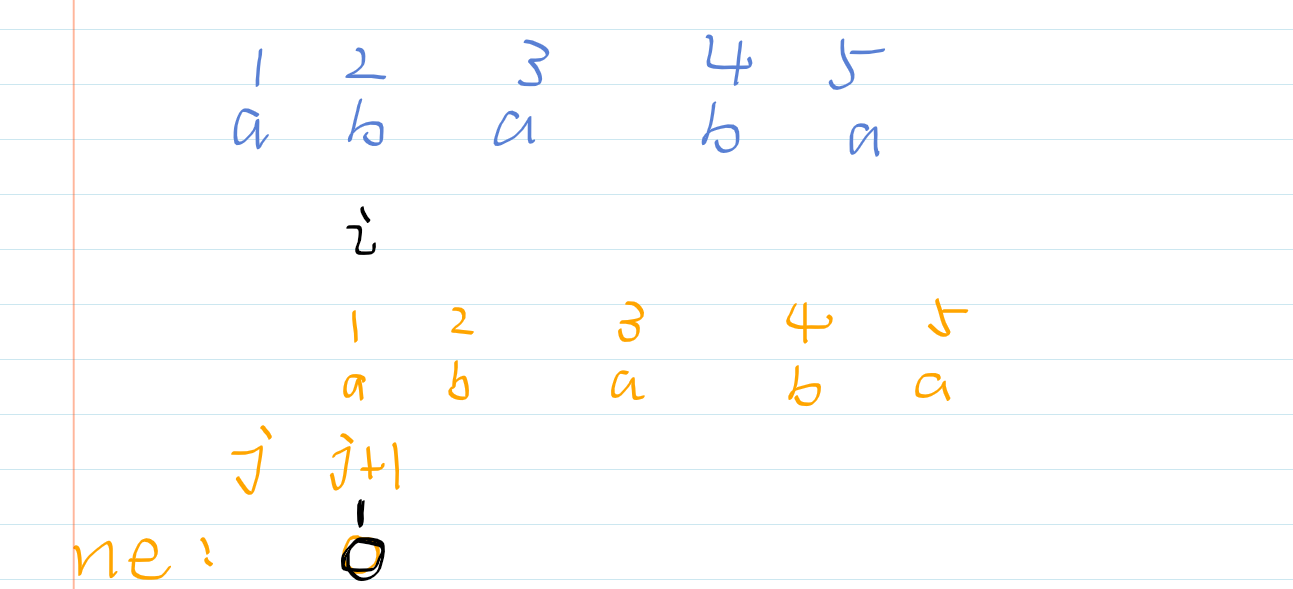 1 2 3 4 5
a b a b a
i
1 2 3 4 5
a b a b a
j j+1
1
ne: 0